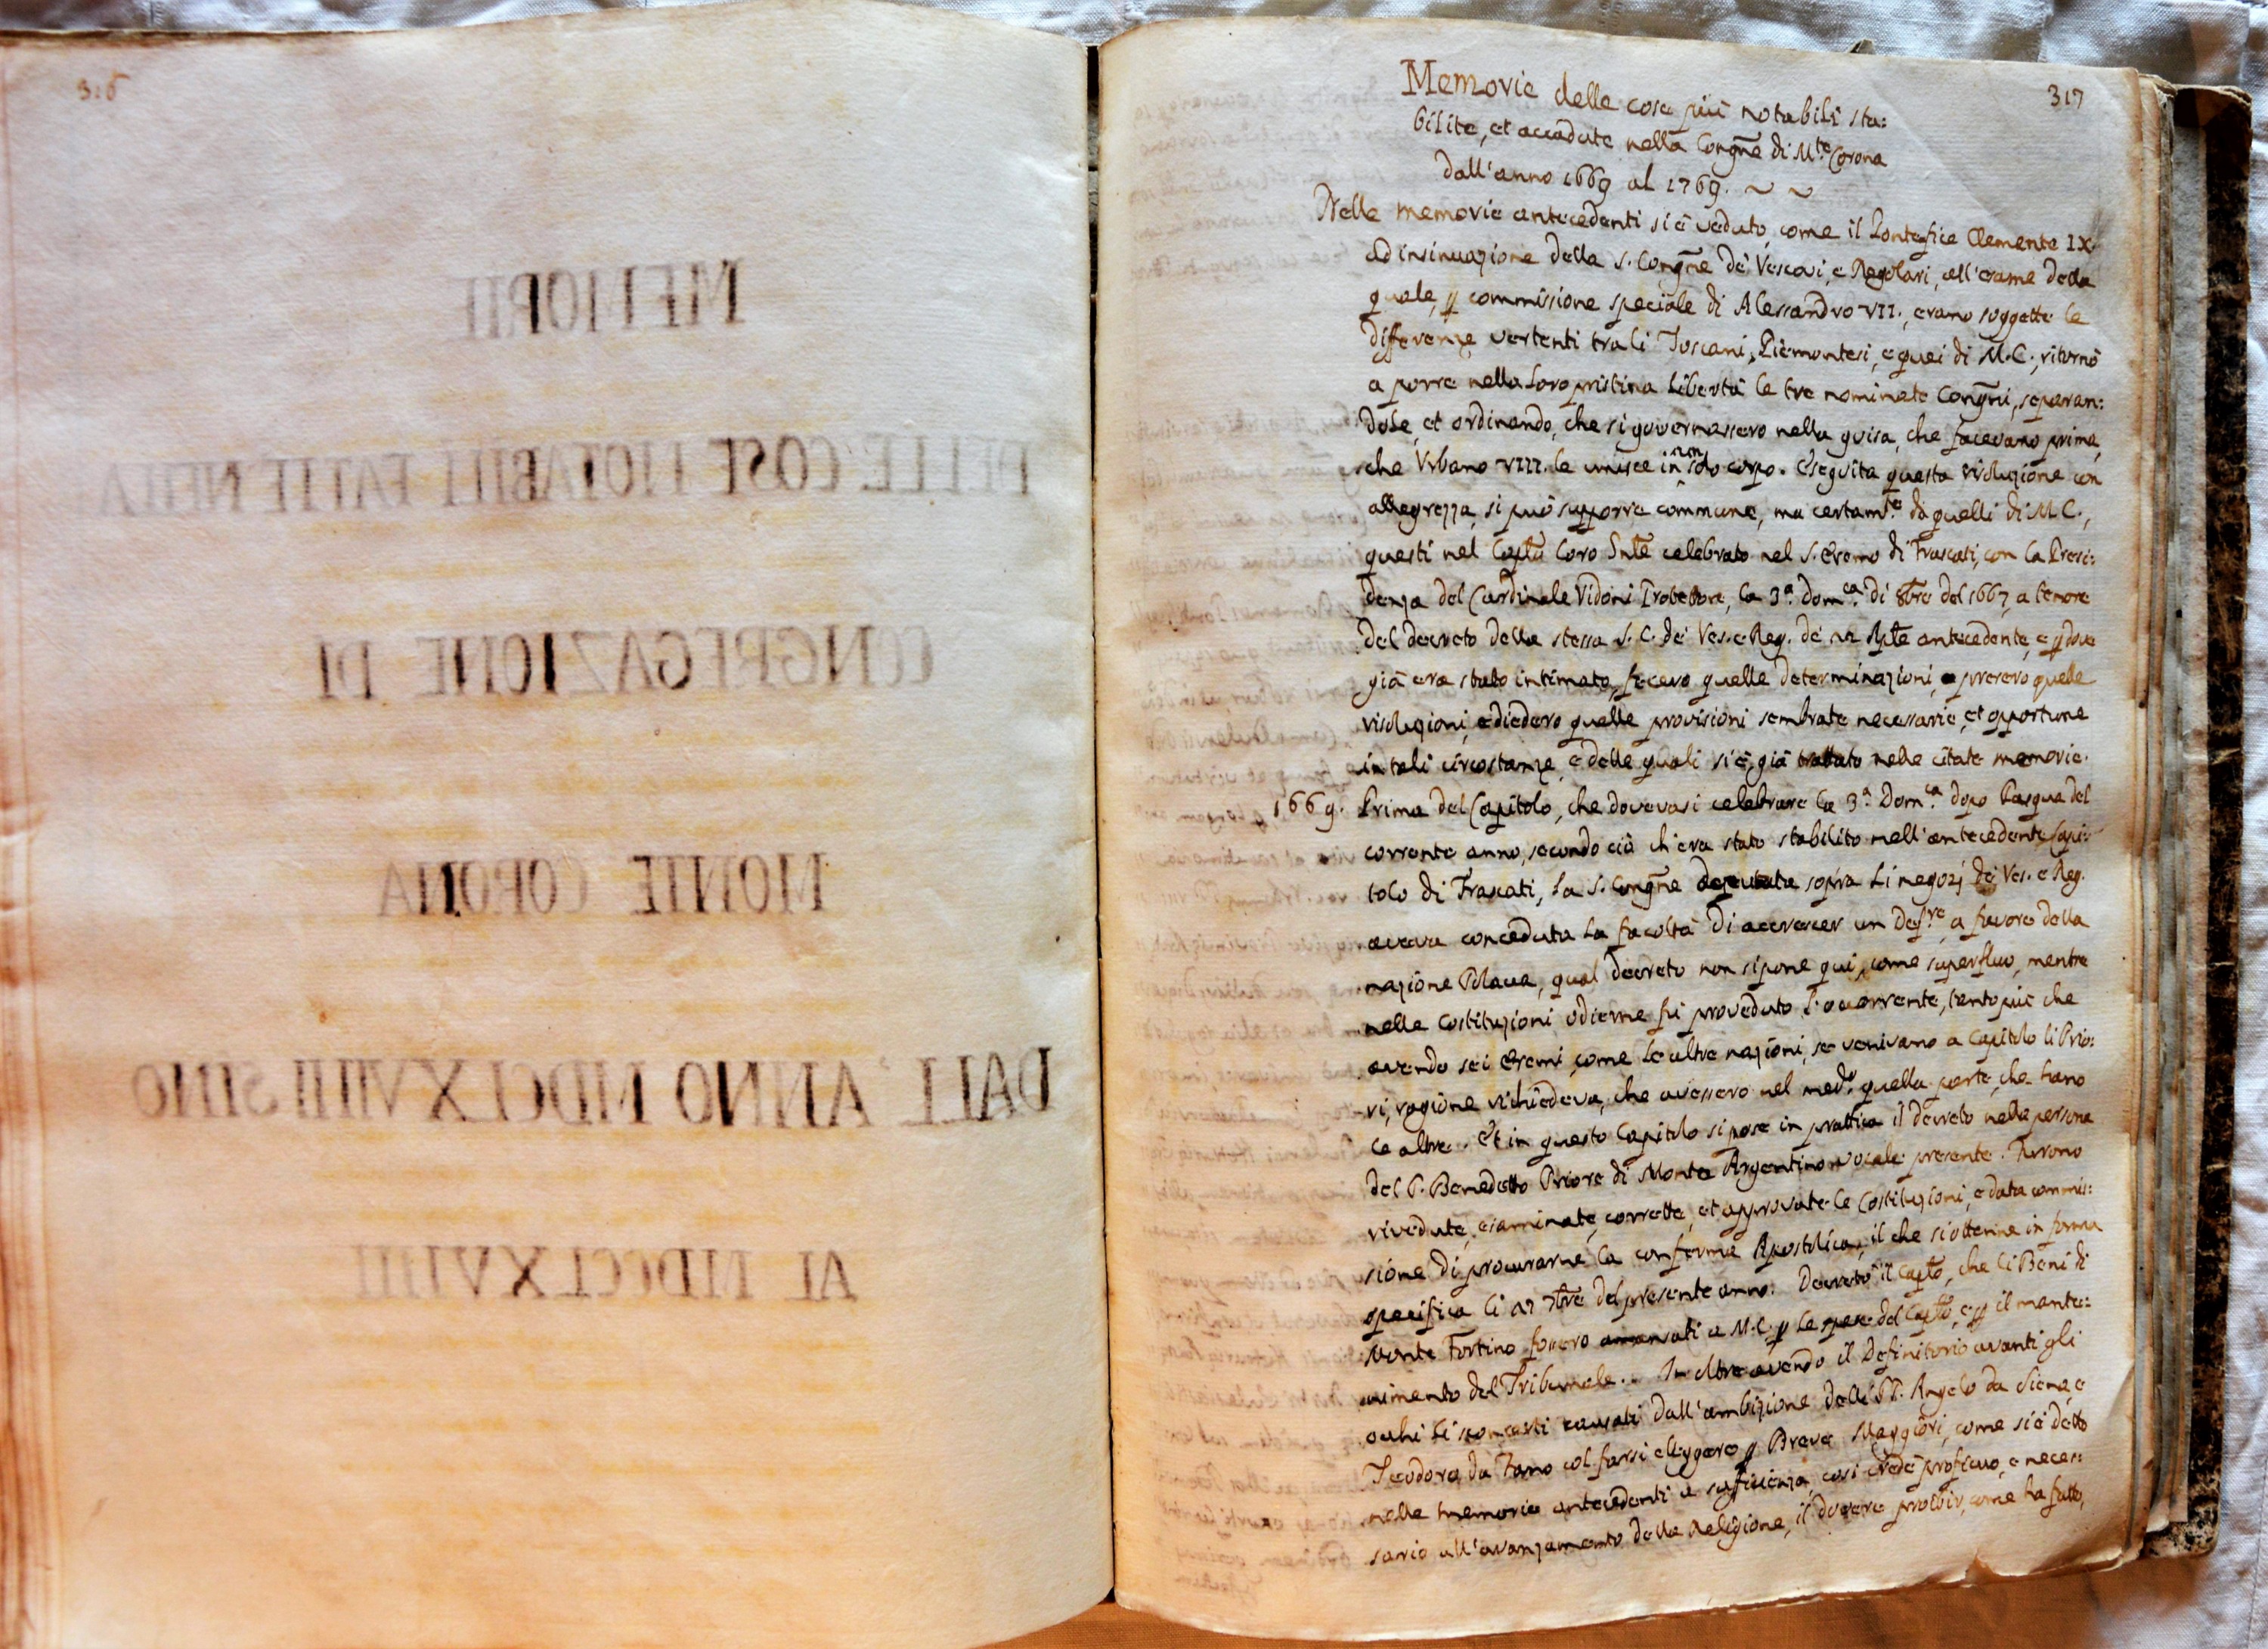 316
MEMORIE
DELLE COSE NOTABILI FATTE NELLA
CONGREGAZIONE DI
MONTE CORONA
DALL'ANNO MDCLXVIIII SINO
AL MDCCLXVIIII
317
Memorie delle cose più notabili sta:
bilite, et accadute nella Congne di Mte Corona
dall'anno 1669 al 1769. ~ ~
Nelle memorie antecedenti si è veduto, come il Pontefice Clemente IX.
ad insinuazione della S. Congne de' Vescovi, e Regolari, all'esame della
quale, p commissione speciale di Alessandro VII., erano soggette le
differenze vertenti tra li Toscani, Piemontesi, e quei di M.C., ritornò
a porre nella loro pristina libertà le tre nominate Congni, separan:
dole, et ordinando, che si governassero nella guisa, che facevano prima,
che Urbano VIII. le unisce in un solo corpo. Eseguita questa risoluzione con
allegrezza, si può supporre commune, ma certamte da quelli di M.C.,
questi nel Caplo loro Gnle celebrato nel S. Eremo di Frascati, con la Presi:
denza del Cardinale Vidoni Protettore, la 3a. domca. di 8bre del 1667, a tenore
del decreto della stessa S.C. de' Ves. e Reg. de' antecedente, e p dove
già era stato intimato, fecero quelle determinazioni, e presero quelle
risoluzioni, e diedero quelle provisioni sembrate necessarie, et opportune
in tali circostanze, e delle quali si è già trattato nelle citate memorie.
1669. Prima del Capitolo, che dovevasi celebrare la 3a. Domca. dopo Pasqua del
corrente anno, secondo ciò ch'era stato stabilito nell'antecedente Capi:
tolo di Frascati, la S. Congne deputata sopra li negozj de' Ves. e Reg.
aveva conceduta la facoltà di accrescer un Defre, a favore della
nazione Polacca, qual decreto non si pone qui, come superfluo, mentre
nelle Costituzioni odierne fu proveduto l'occorrente, tanto più che
avendo sei Eremi, come le altre nazioni, se venivano a Capitolo li Prio:
ri, ragione richiedeva, che avessero nel medo. quella parte, che hano
le altre. Et in questo Capitolo si pose in prattica il decreto nella persona
del P. Benedetto Priore di Monte Argentino vocale presente. Furono
rivedute, esaminate, corrette, et approvate le Costituzioni, e data commis:
sione di procurarne la conferma Apostolica, il che si ottenne in forma
specifica li 7bre del presente anno. Decretò il Caplo, che li Beni di
Monte Fortino fossero a M.C. p le spese del Caplo, e p il mante:
nimento del Tribunale. In oltre avendo il Definitorio avanti gli
ochi li sconcerti causati dall'ambizione delli PP. Angelo da Siena, e
Teodoro da Fano col farsi elleggere p Breve Maggiori, come si è detto
nelle memorie antecedenti a sufficienza, così crede proficuo, e neces:
sario all'avanzamento della Religione, il dovere proibir, come ha fatto,